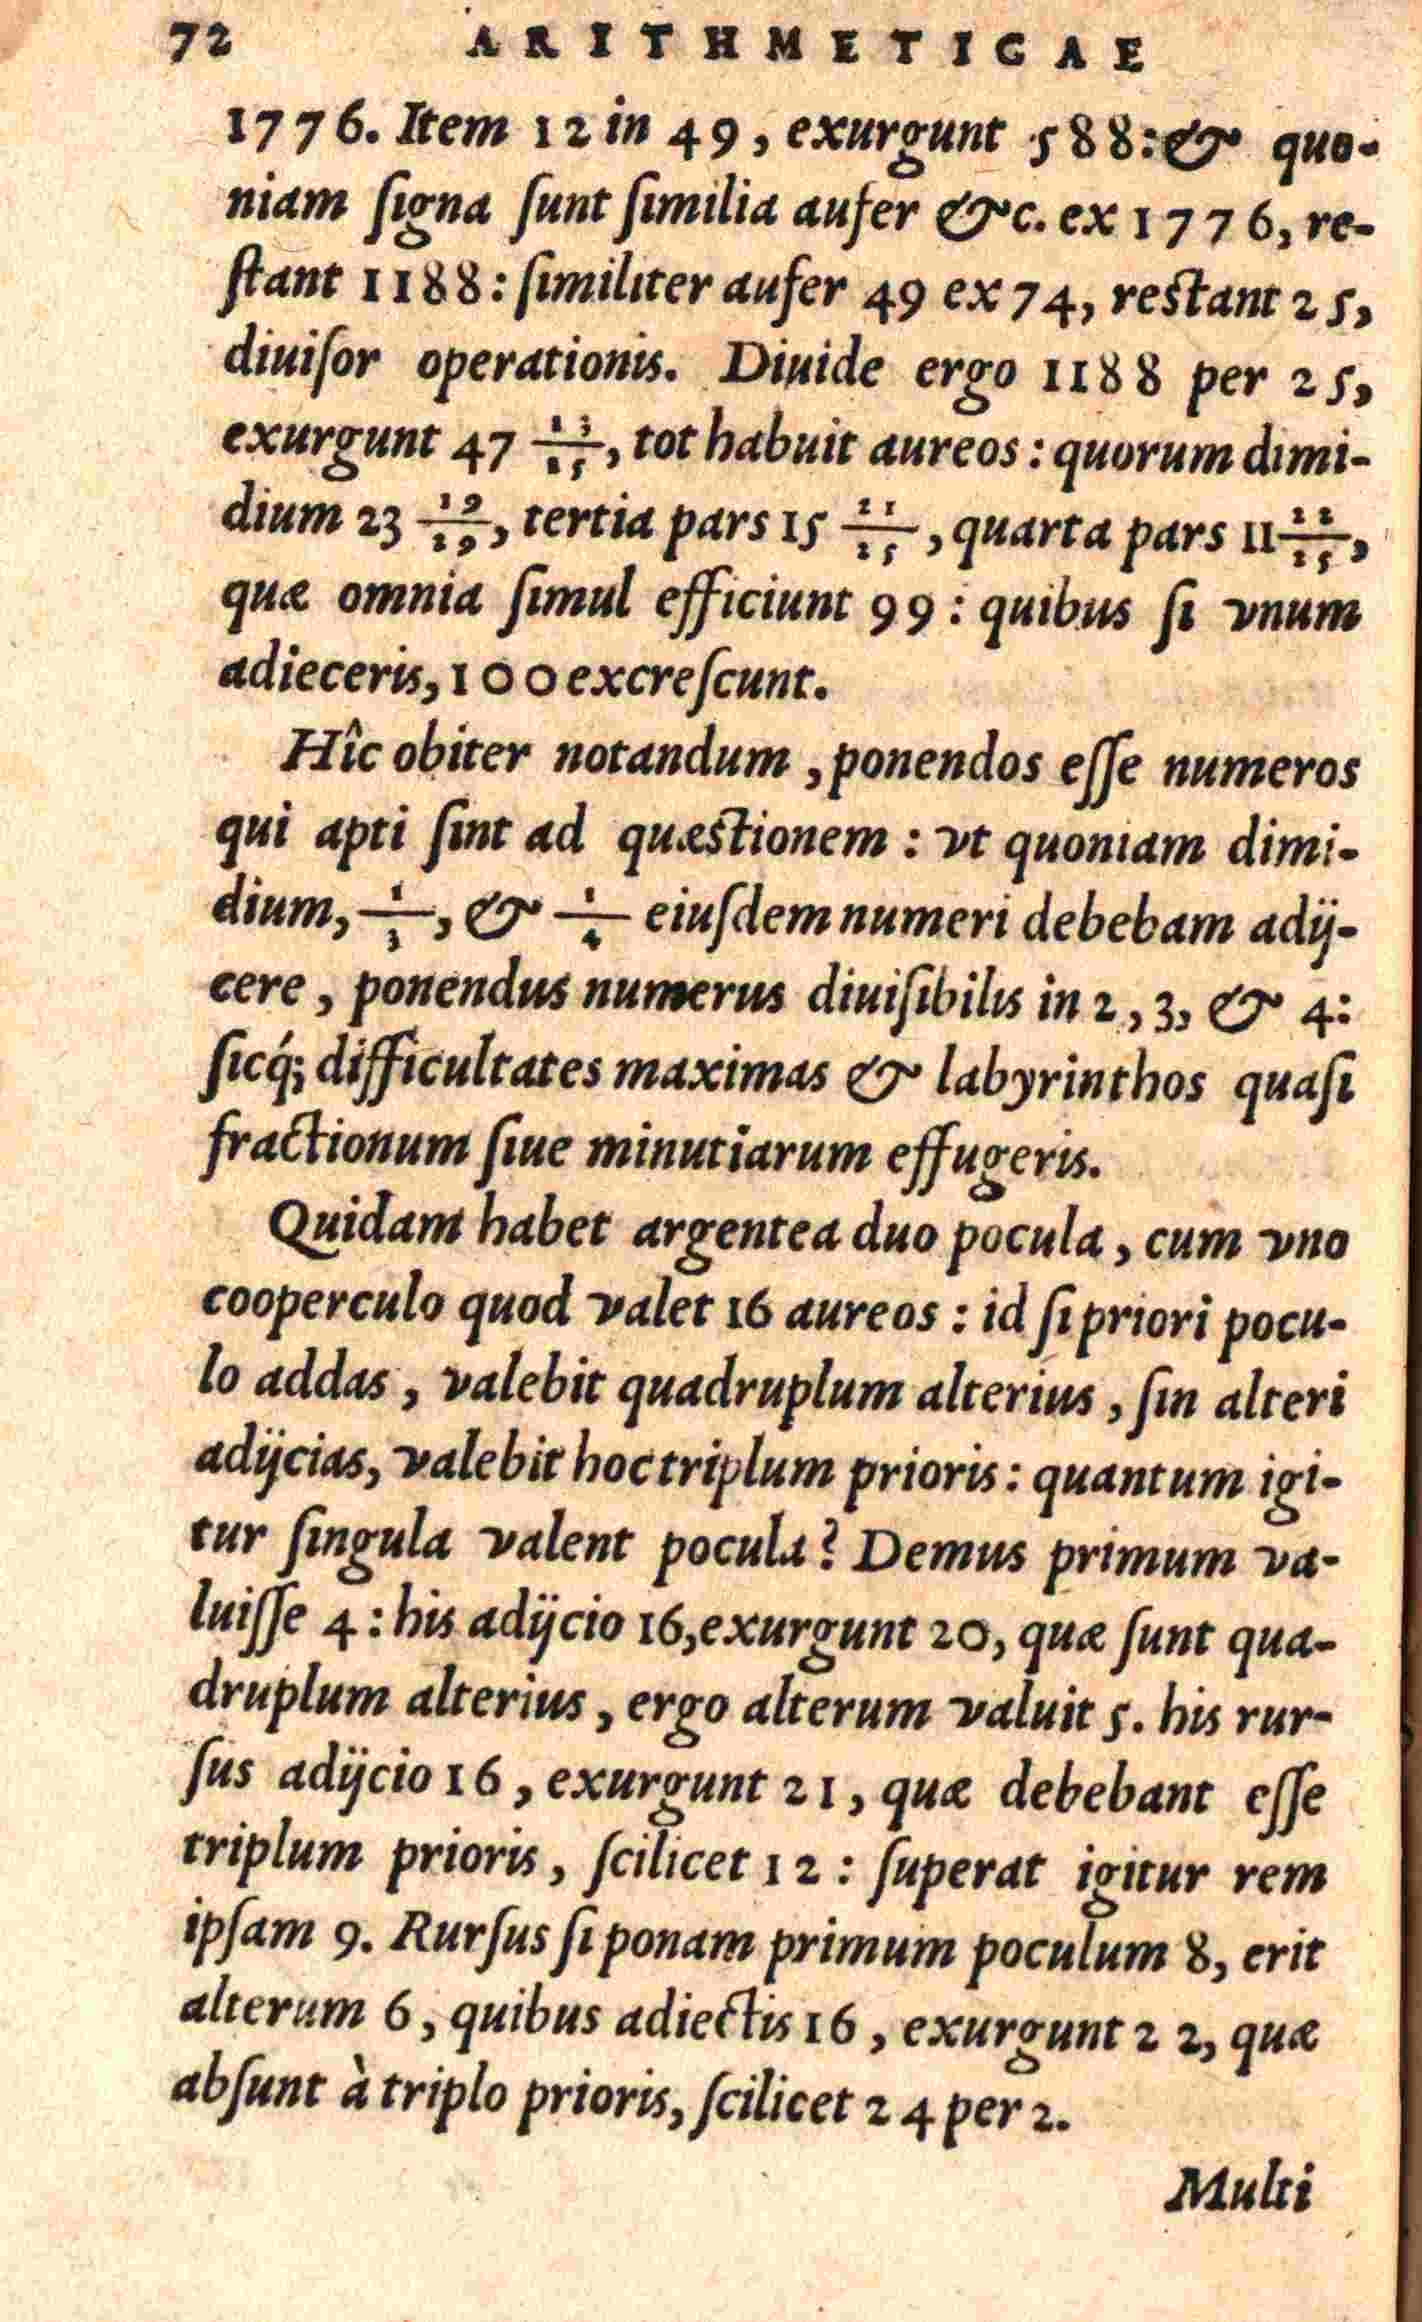 72 ARITHMETICAE
1776. Item 12 in 49, exurgunt 588: & quo-
niam ſigna ſunt ſimilia aufer &c. ex 1776, re-
ſtant 1188: ſimiliter aufer 49 ex 74, reſtant 25,
diuiſor operationis. Diuide ergo 1188 per 25,
exurgunt 47 13/25, tot habuit aureos: quorum dimi-
dium 23 19/29, tertia pars 15 21/25, quarta pars 11 22/25,
quæ omnia ſimul efficiunt 99: quibus ſi vnum
adieceris, 100 excreſcunt.
Hîc obiter notandum, ponendos eſſe numeros
qui apti ſint ad quæſtionem: vt quoniam dimi-
dium, 1/3, & 1/4 eiuſdem numeri debebam adij-
cere, ponendus numerus diuiſibilis in 2, 3, & 4:
ſicq́; difficultates maximas & labyrinthos quaſi
fractionum ſiue minutiarum effugeris.
Quidam habet argentea duo pocula, cum vno
cooperculo quod valet 16 aureos: id ſi priori pocu-
lo addas, valebit quadruplum alterius, ſin alteri
adijcias, valebit hoc triplum prioris: quantum igi-
tur ſingula valent pocula? Demus primum va-
luiſſe 4: his adijcio 16, exurgunt 20, quæ ſunt qua-
druplum alterius, ergo alterum valuit 5. his rur-
ſus adijcio 16, exurgunt 21, quæ debebant eſſe
triplum prioris, ſcilicet 12: ſuperat igitur rem
ipſam 9. Rurſus ſi ponam primum poculum 8, erit
alterum 6, quibus adiectis 16, exurgunt 22, quæ
abſunt à triplo prioris, ſcilicet 24 per 2.
Multi